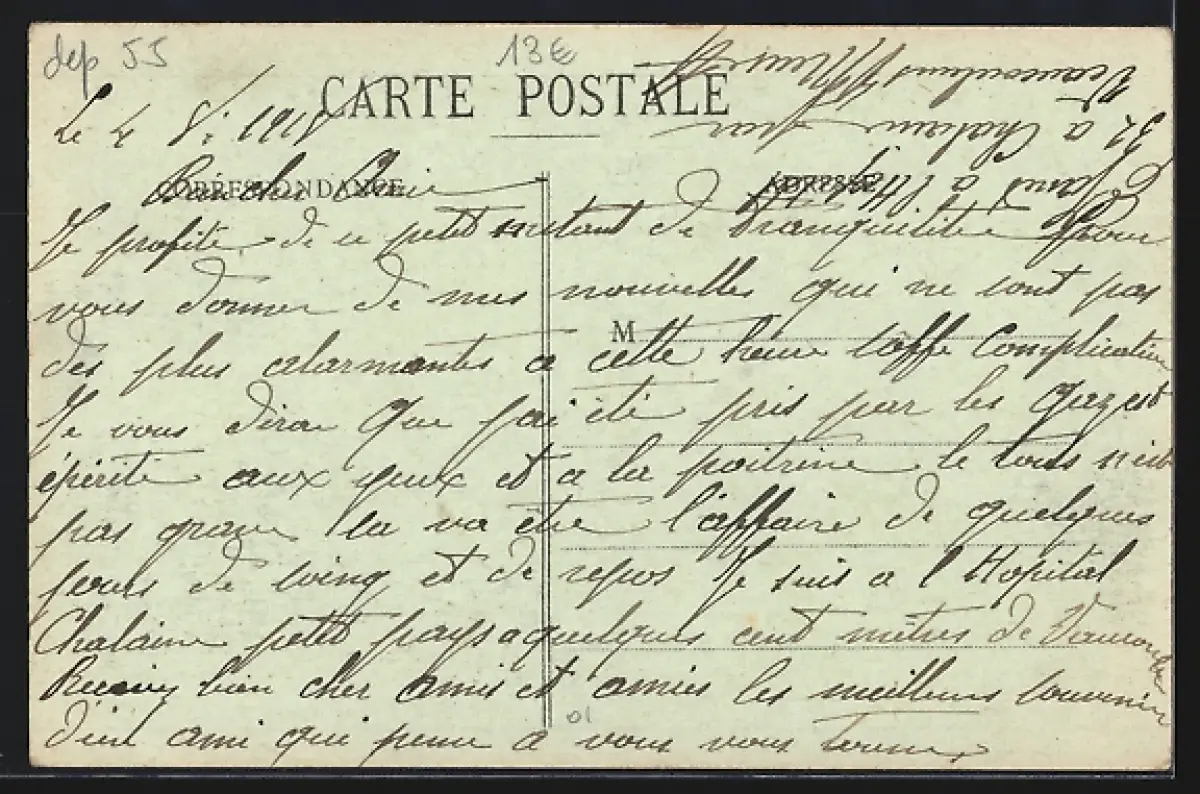 dep 55
13€
CARTE POSTALE
Le 4 1918
CORRESPONDANCE
ADRESSE
Bien cher
Je profite de ce petit instant de tranquilité pour
vous donner de mes nouvelles qui ne sont pas
M
des plus alarmantes a cette heure Complication
Je vous dirai que j'ai été pris par les gaz est
aux yeux et a la poitrine le tous n'est
pas grave sa va être l'affaire de quelques
jours de soing et de repos Je suis a l'Hopital
Chalaine petit pays a quelques cent mètres de
Recevez bien cher amis et amies les meilleurs souvenir
d'un ami qui pense a vous
01
a Chalaine sur